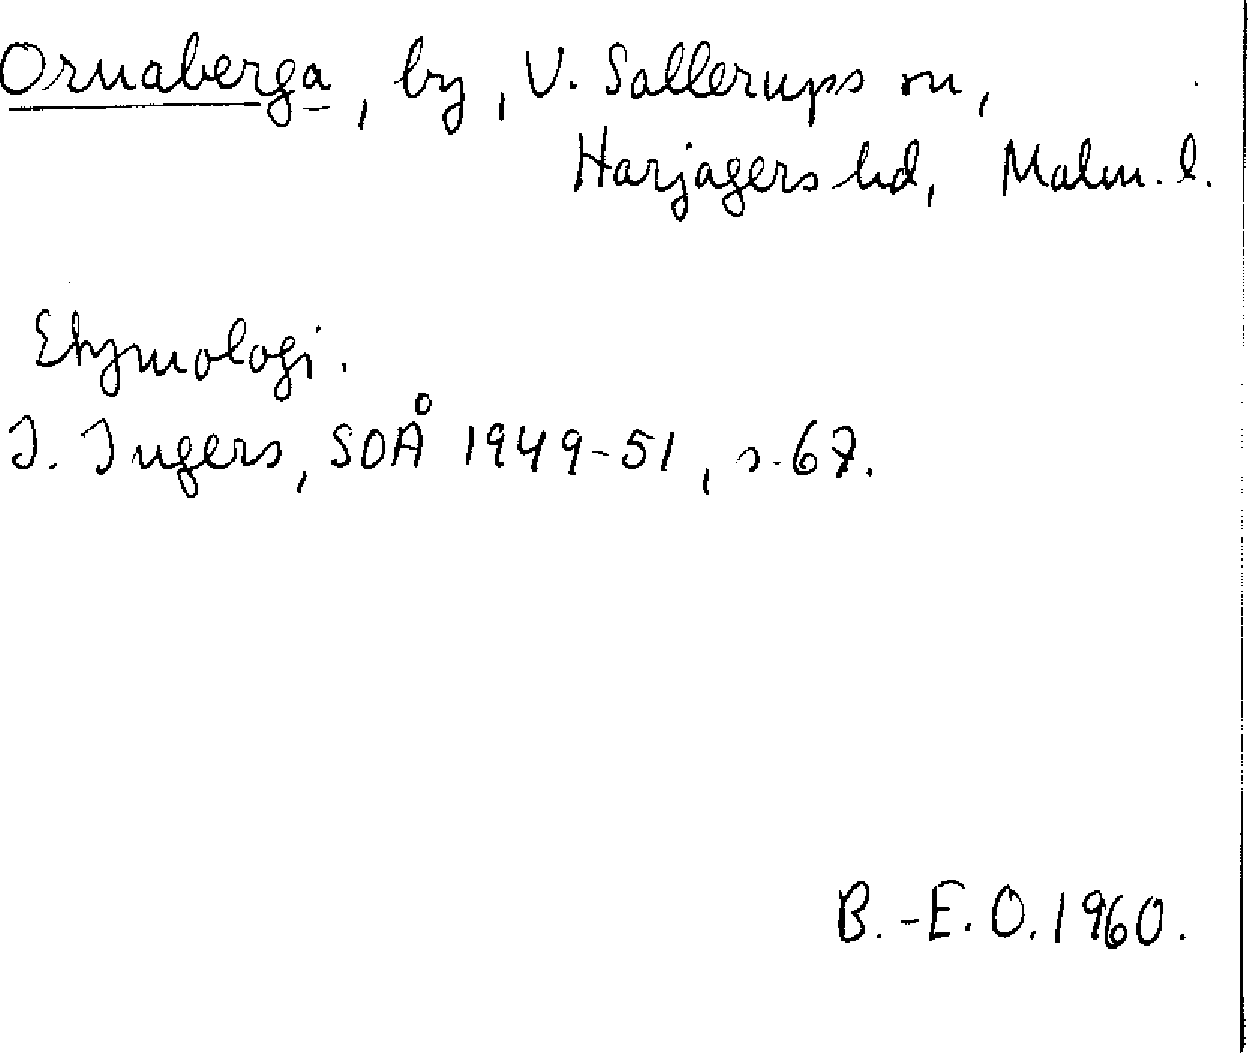 Ornaberga, by, V. Sallerups sn,
Harjagers hd, Malm. l.
Etymologi.
I. Ingers, SOÅ 1949-51, s. 67.
B.-E. O. 1960.